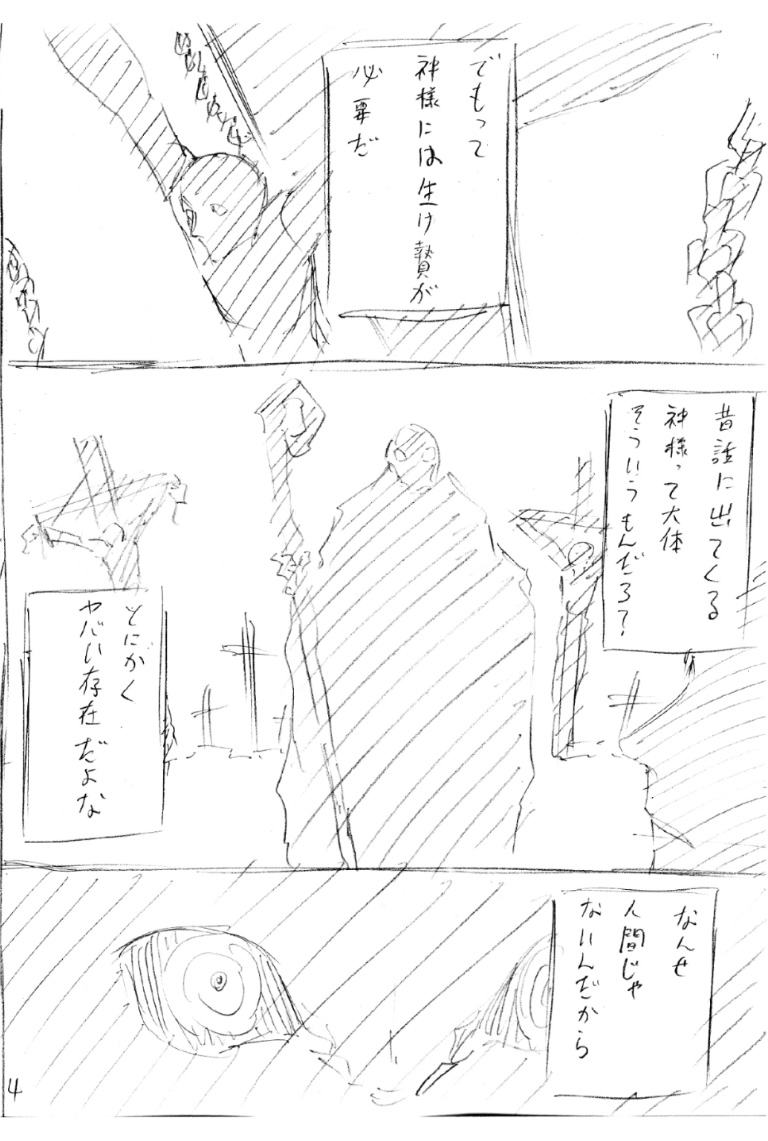 でもって
神様には生け贄が
必要だ
昔話に出てくる
神様って大体
そういうもんだろ？
とにかく
ヤバい存在だよな
なんせ
人間じゃ
ないんだから
4